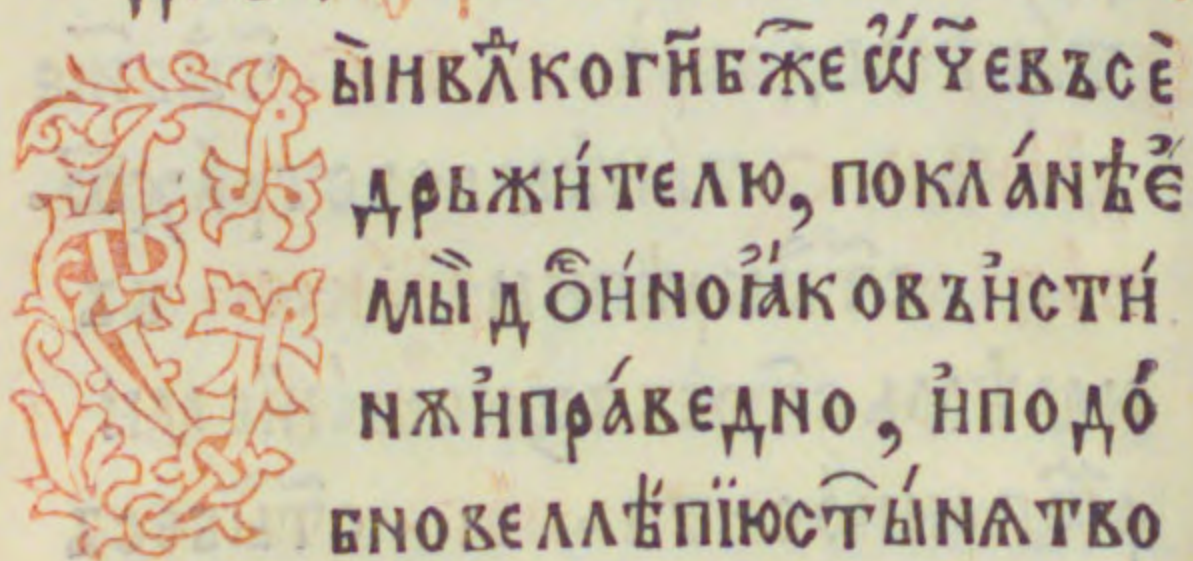 Сы̀ивлⷣкогн҃б҃жеѿ҆́ч҃евъсѐ
дрьжи́телю, покла́нѣе҆́
мы̀идоⷭ҇и́ноꙗ҆́ковъи҆сти́
нѫи҆пра́ведно , и҆подо́
бновеллѣ́пїюст҃ы́нѧтво